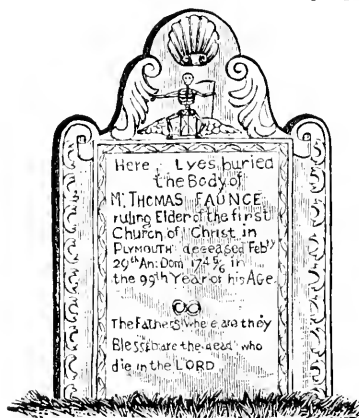 Here Lyes buried
the Body of
Mr THOMAS FAUNCE
ruling Elder of the first
Church of Christ in
PLYMOUTH deceased Febry
29th An: Dom 174 5/6 in
the 99th Year of his AGE.
The Fathers where are they
Blessed are the dead who
die in the LORD